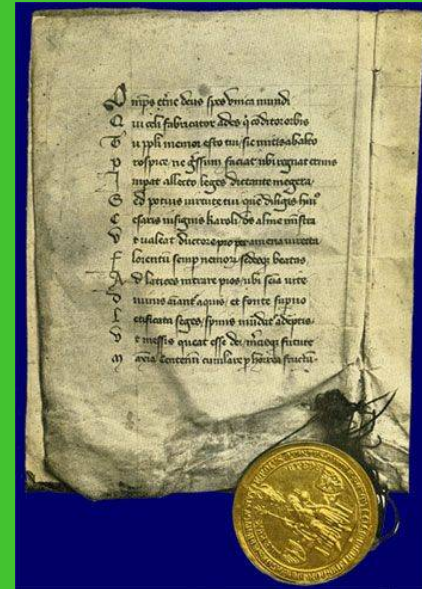 Omps etne deus spes vnica mundi
Qui celi fabricator ades q ꝯditor orbis
Tu ppli memor esto tui / sic mitis ab alto
Prospice / ne gssum faciat ubi regnat erinis
Impat allecto leges dictante megera /
Sed potius uirtute tui / que diligis hui9
Cesaris insignis karoli / ds alme mistra
Vt ualeat ductore pio per amena uireta
Florentu semp nemor sedesq beatas
Ad latices intrare pios / ubi seia uite
Diuinis aiant aquis / et fonte supno
Letificata seges / spinis mudat adeptis
Vt messis queat esse dei / mcisq future
Maxia centenu cumulare p horrea fructu